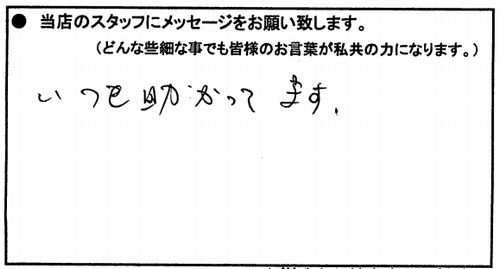 ● 当店のスタッフにメッセージをお願い致します。
(どんな些細な事でも皆様のお言葉が私共の力になります。)
いつも助かってます.